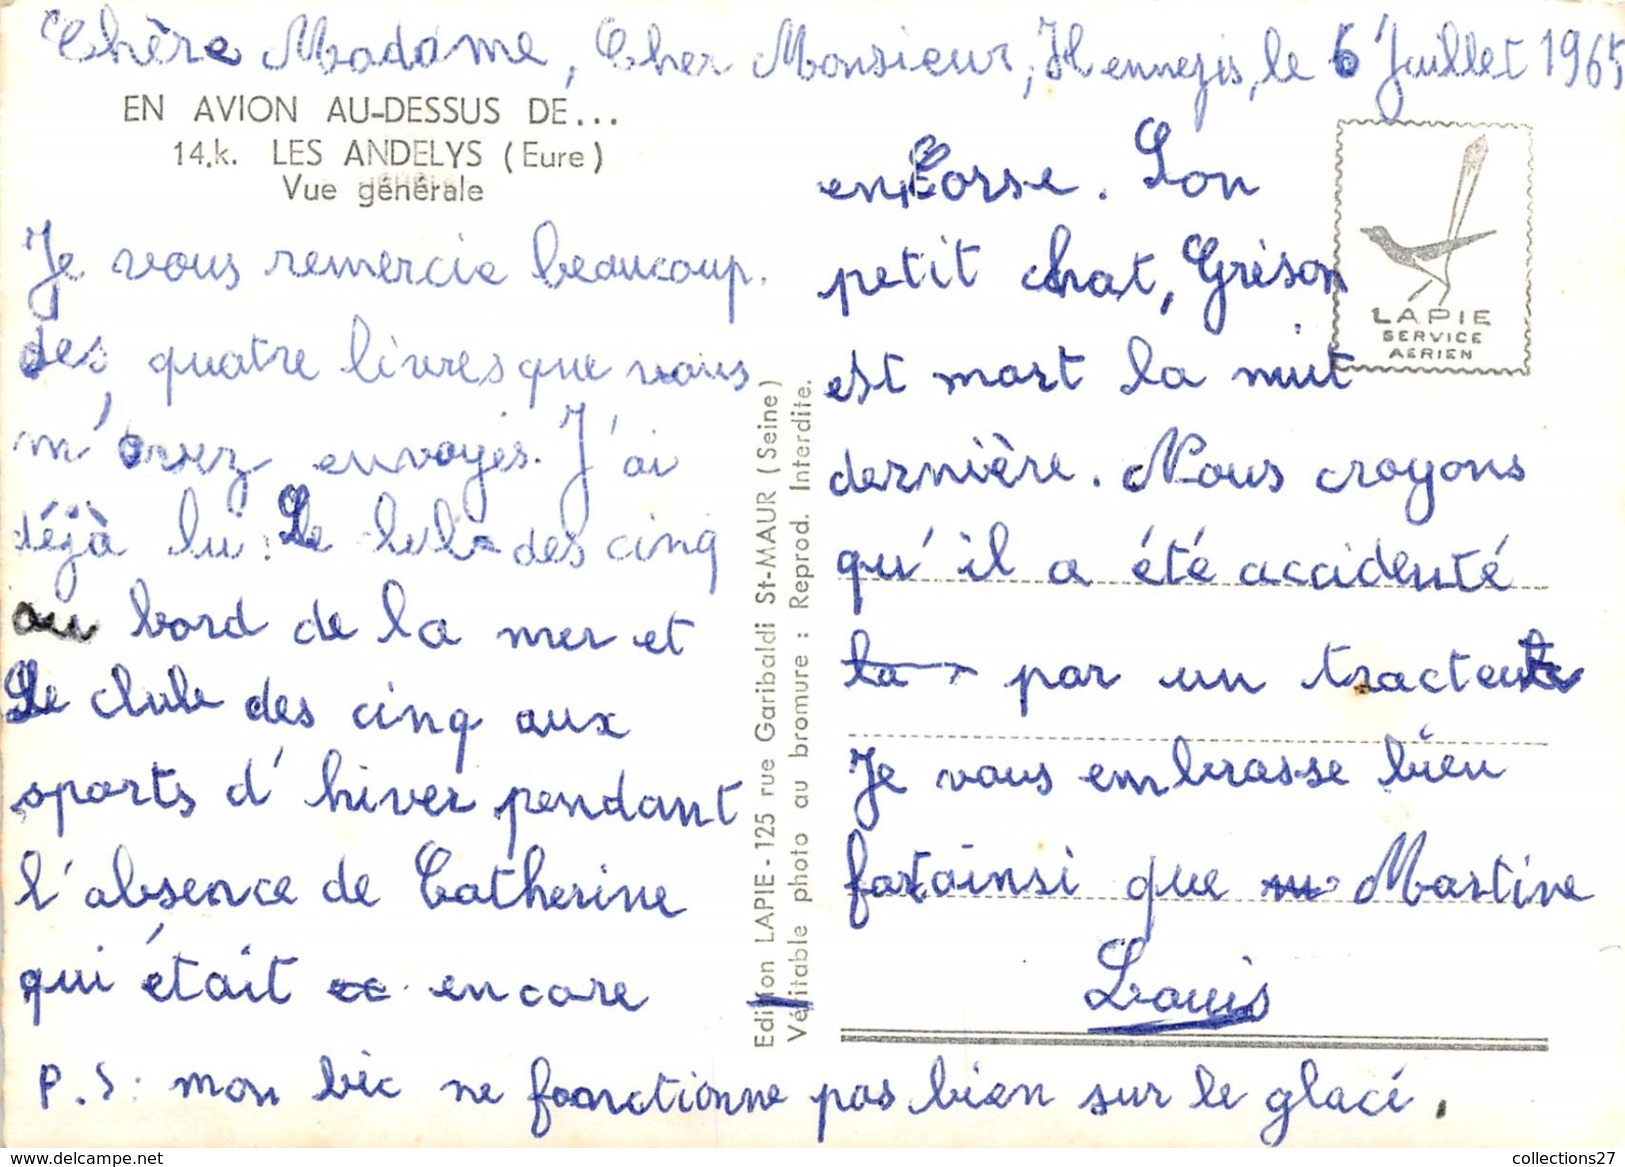 Chère Madame, Cher Monsieur, Hennezis, le 6 Juillet 1965
EN AVION AU-DESSUS DE...
14.k. LES ANDELYS (Eure)
Vue générale
Je vous remercie beaucoup.
des quatre livres que vous
m'avez envoyés. J'ai
déjà lu : Le club des cinq
au bord de la mer et
Le club des cinq aux
sports d'hiver pendant
l'absence de Catherine
qui était encore
en Corse. Son
petit chat, Grison
est mort la nuit
dernière. Nous croyons
qu'il a été accidenté
la par un tracteur
Je vous embrasse bien
fort ainsi que Martine
Louis
P.S: mon bic ne fonctionne pas bien sur le glacé.
LAPIE
SERVICE
AERIEN
Edition LAPIE - 125 rue Garibaldi St-MAUR (Seine)
Véritable photo au bromure : Reprod. Interdite.
collections27